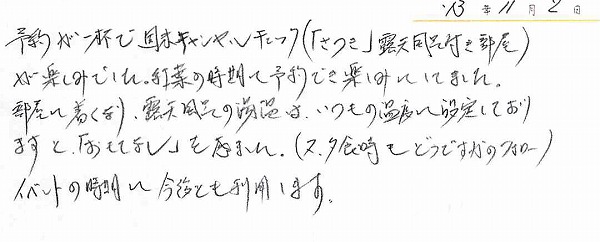 '13年11月2日
予約が一杯で週末キャンセルチェック(「さつき」露天風呂付き部屋)
が楽しみでした。紅葉の時期に予約でき楽しみにしてました。
部屋に着くなり、露天風呂の湯温は、いつもの温度に設定しており
ますと、「おもてなし」を受ました。(又、夕食時もどうですかのフォロー)
イベントの時期に今後とも利用します。